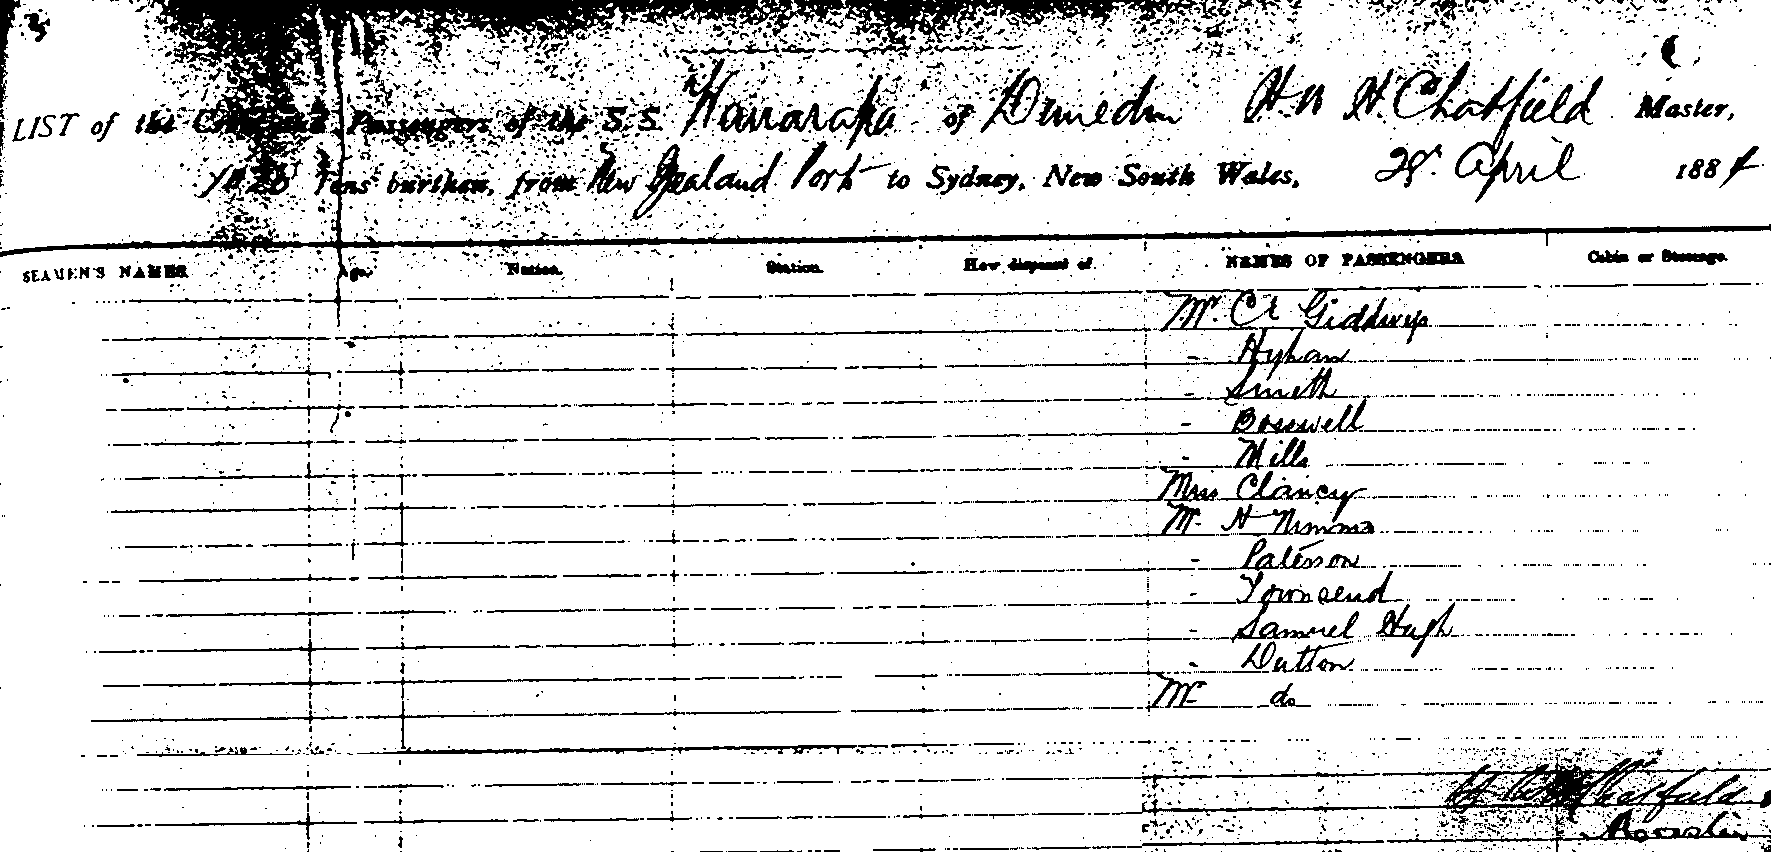 LIST of the Crew and Passengers of the S.S. Wairarapa of Dunedin H. W. H. Chatfield Master,
Tons burthen, from New Zealand Port to Sydney, New South Wales, 28. April 1884
SEAMEN'S NAMES Age. Nation. Station. How disposed of NAMES OF PASSENGERS Cabin or Steerage.
Mr. Giddings
- Hyham
- Smith
- Bosswell
- Mills
Miss Clancy
Mr. H Nimmo
- Paterson
- Townsend
- Samuel Hugh
- Dutton
Mr. do
Chatfield